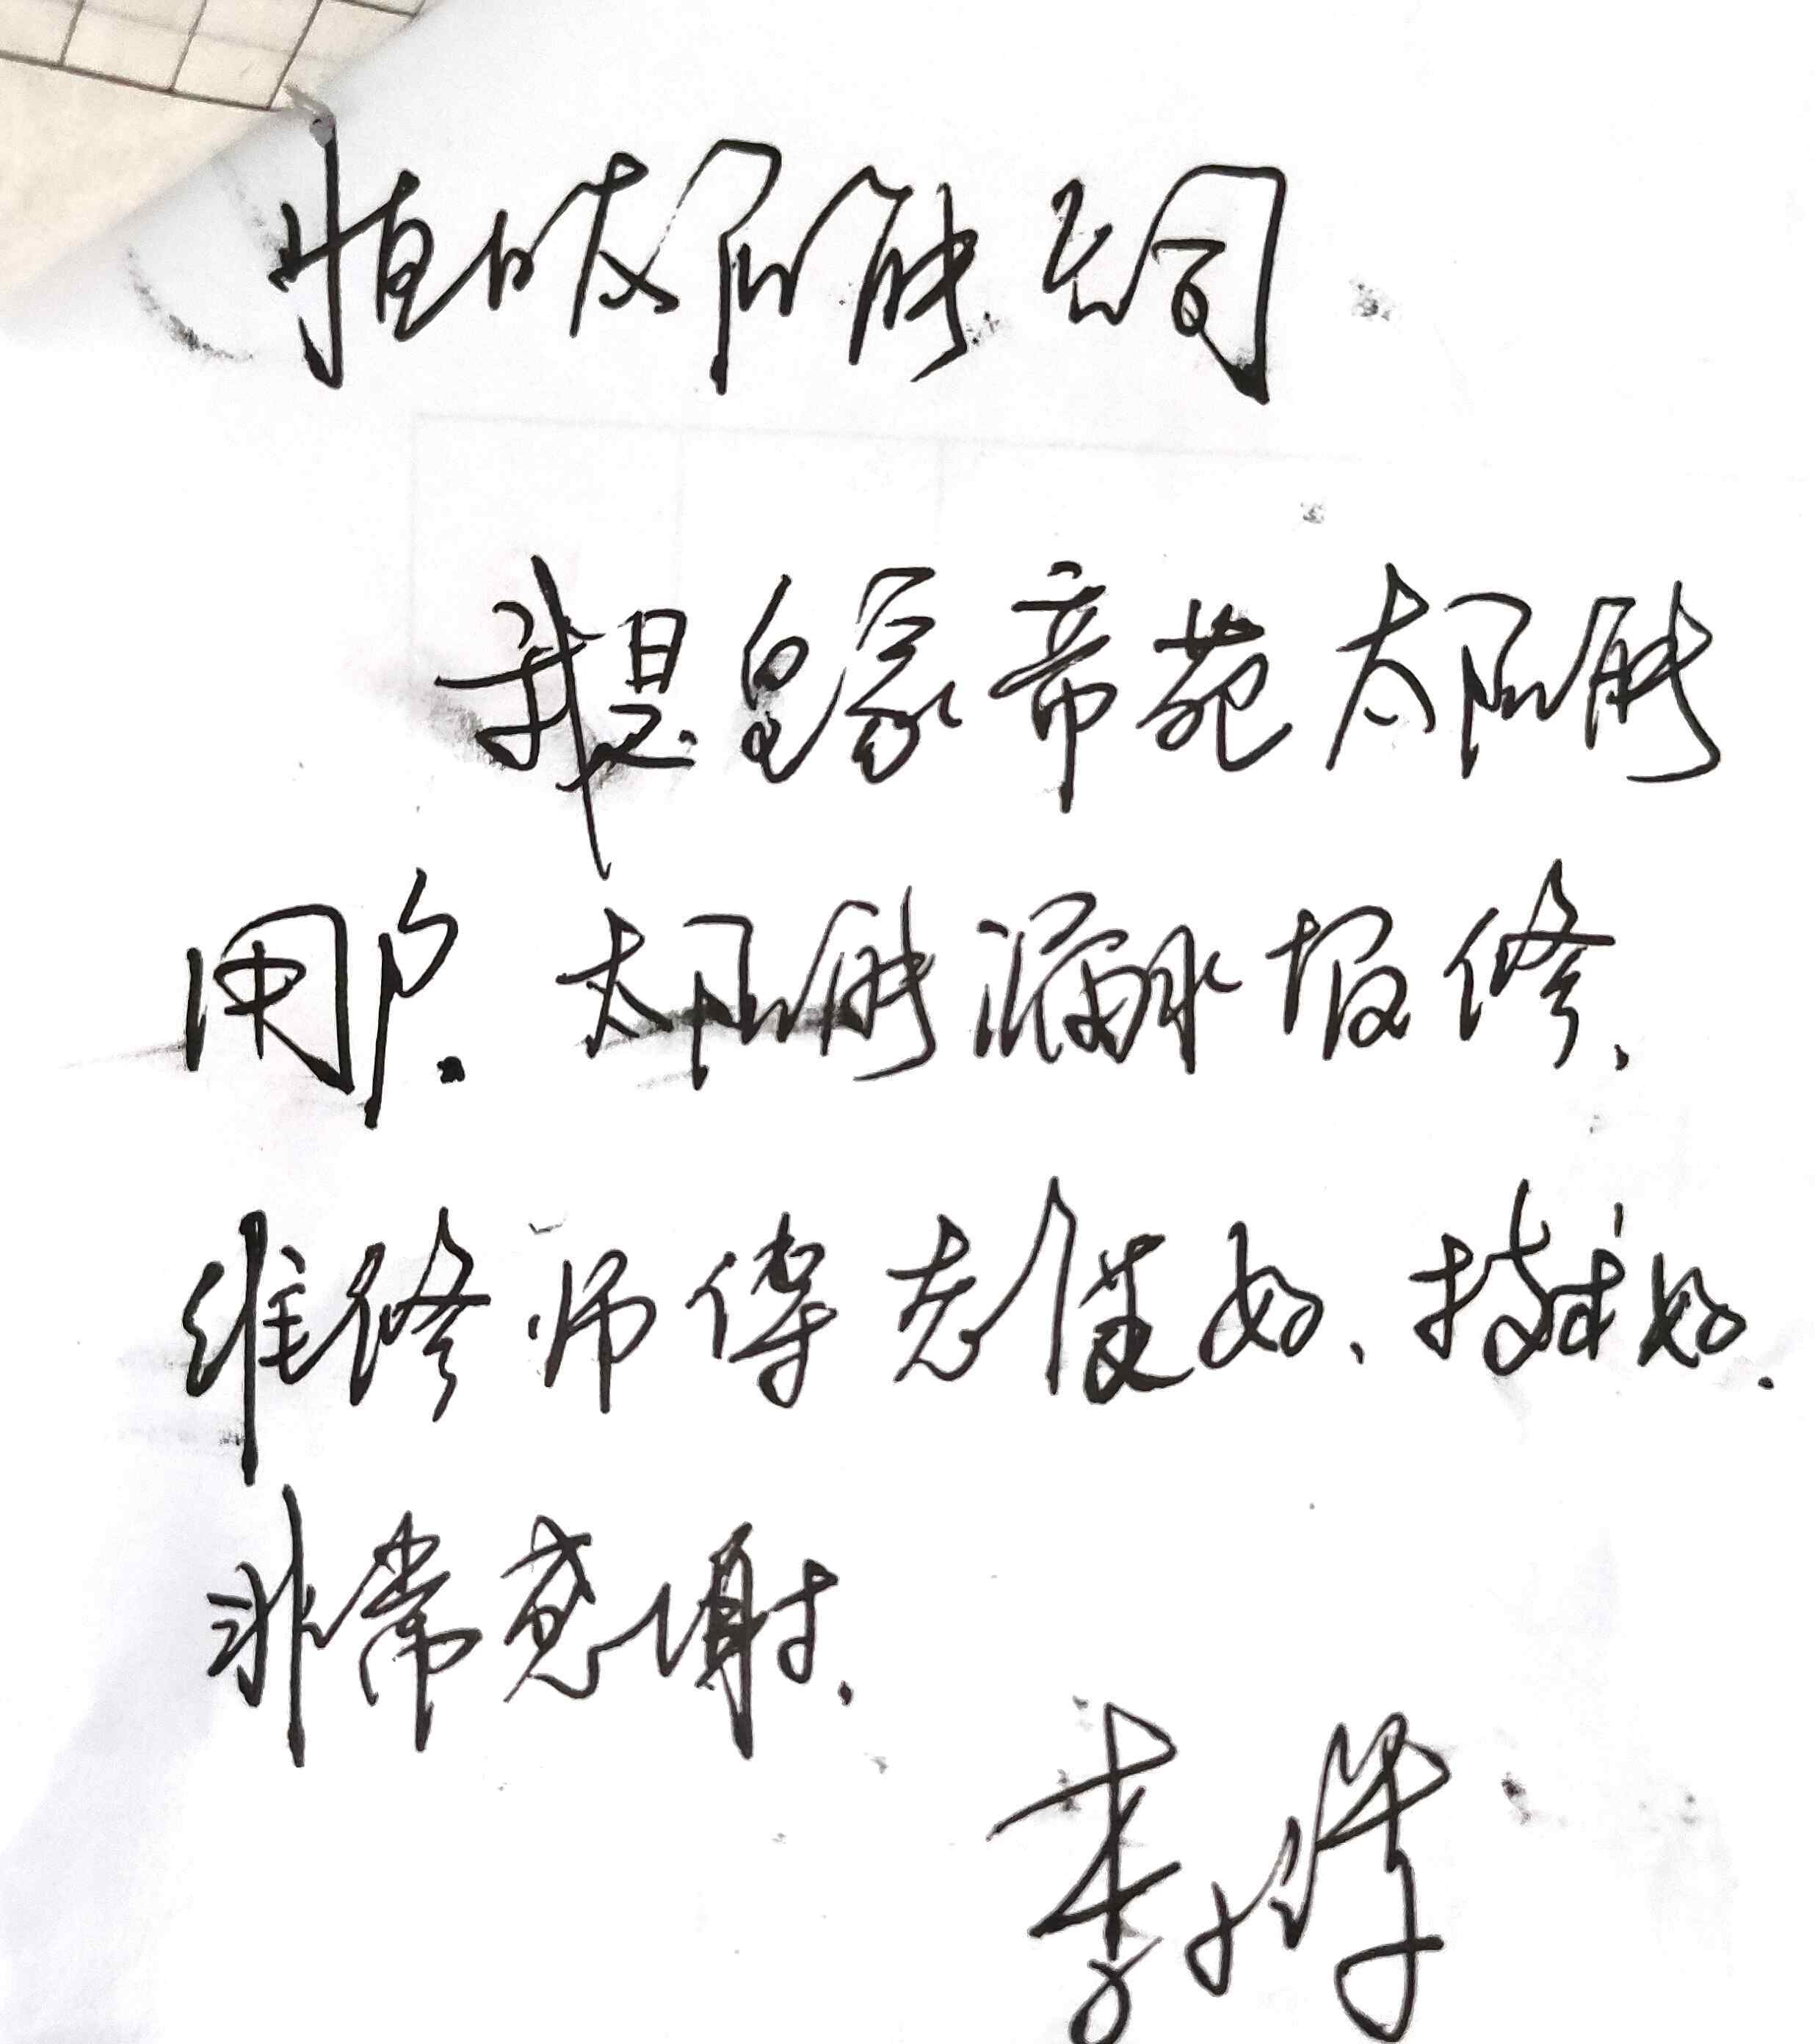 恒的太阳能公司
我是皇家帝苑太阳能
用户.太阳能漏水报修、
维修师傅态度好、技术好.
非常感谢.
李